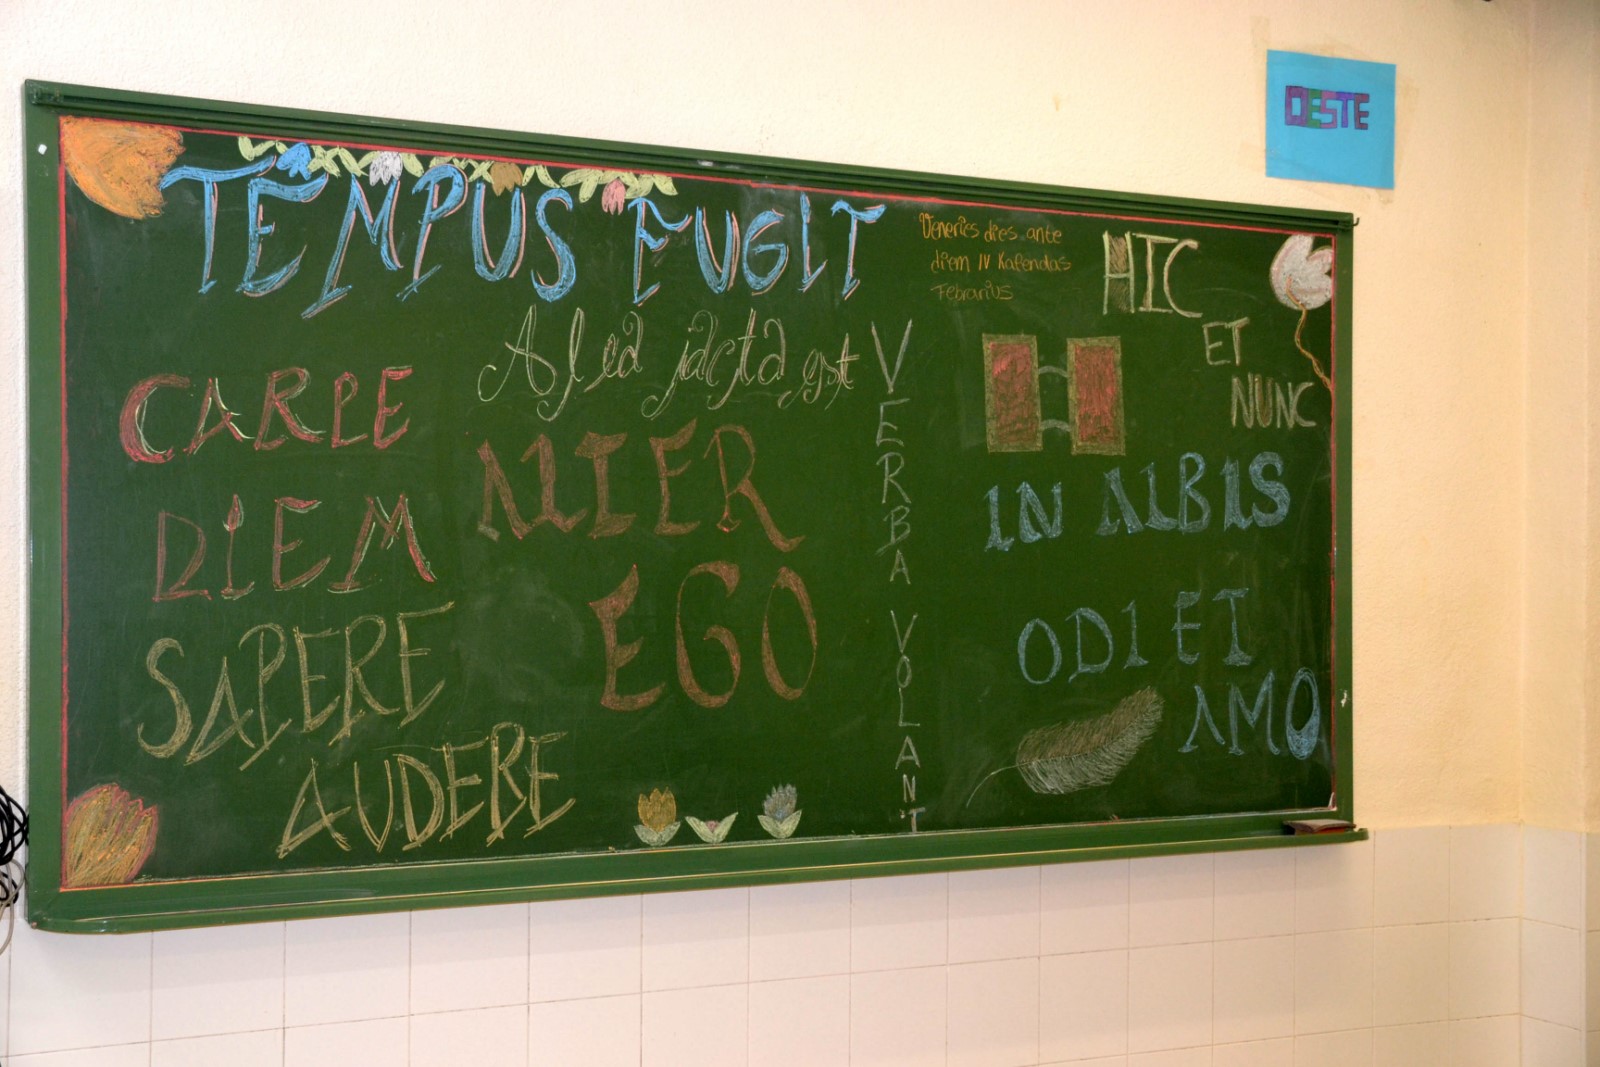 OESTE
TEMPUS FUGIT
Veneries dies ante
diem IV Kalendas
Febrarius
HIC
ET
NUNC
Alea jacta est
CARPE
DIEM
ALTER
EGO
SAPERE
AUDERE
VERBA VOLANT
IN ALBIS
ODI ET
AMO